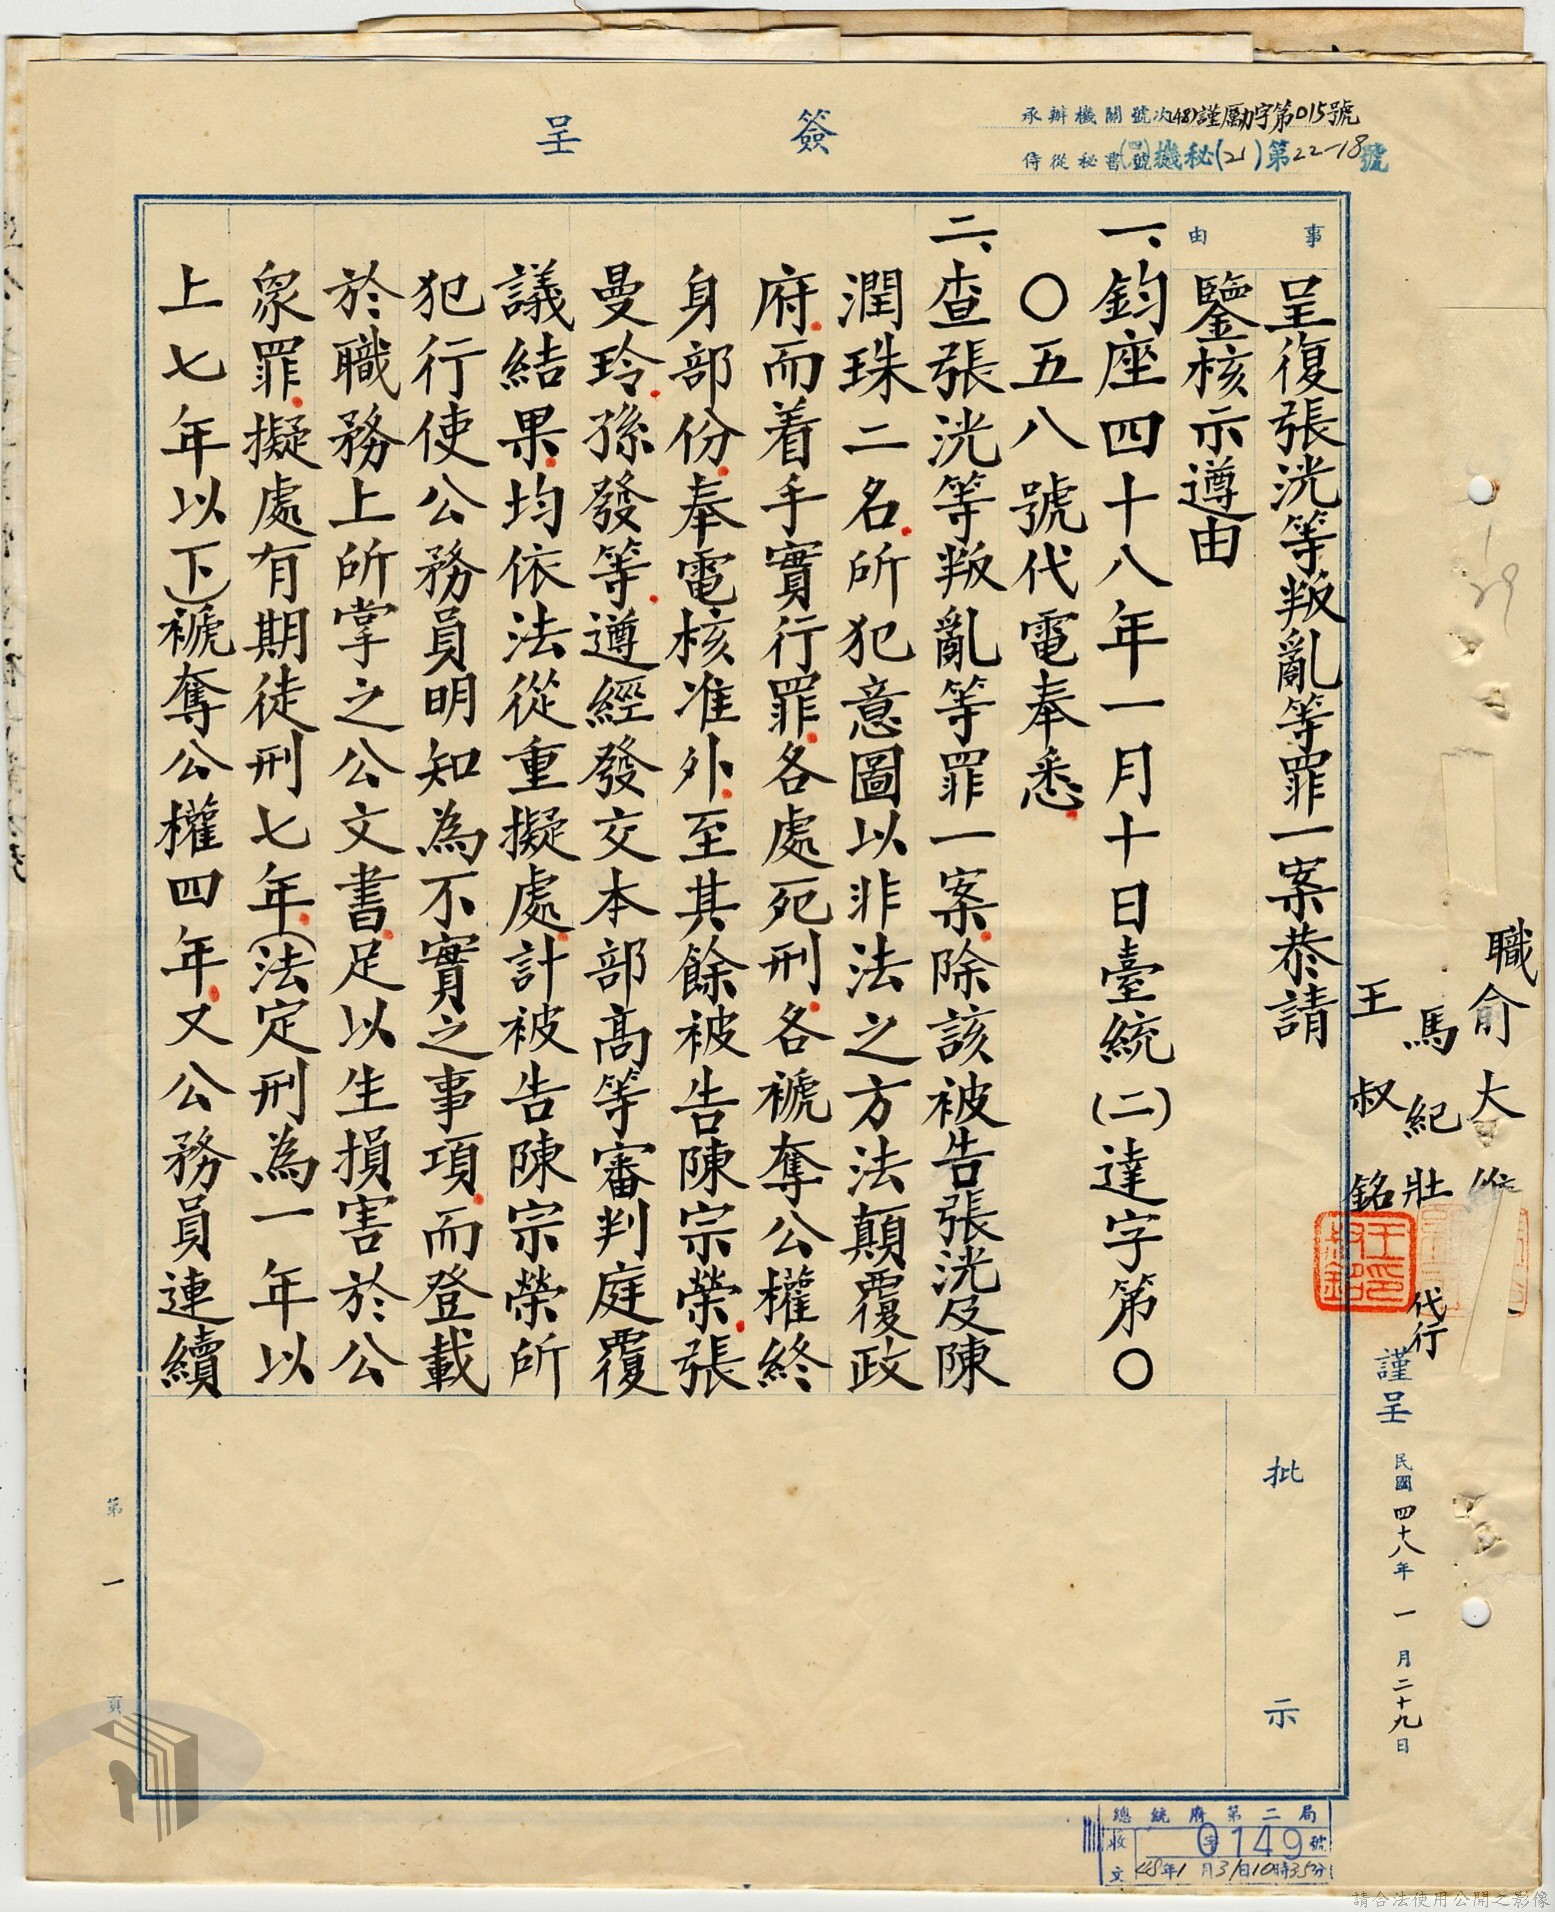 簽呈
承辦機關號次(48)謹勵字第015號
侍從秘書(號)機秘(21)第22-18號
事由
呈復張洸等叛亂等罪一案恭請
鑒核示遵由
一、鈞座四十八年一月十日臺統(二)達字第〇
〇五八號代電奉悉
二、查張洸等叛亂等罪一案除該被告張洸及陳
潤珠二名所犯意圖以非法之方法顛覆政
府而着手實行罪各處死刑各褫奪公權終
身部份奉電核准外至其餘被告陳宗榮張
曼玲孫發等遵經發交本部高等審判庭覆
議結果均依法從重擬處計被告陳宗榮所
犯行使公務員明知為不實之事項而登載
於職務上所掌之公文書足以生損害於公
眾罪擬處有期徒刑七年(法定刑為一年以
上七年以下)褫奪公權四年又公務員連續
批示
職俞大維
馬紀壯代行
王叔銘
王叔銘印
謹呈
民國四十八年一月二十九日
第一頁
總統府第二局
收文 字0149號
48年1月31日10時35分
請合法使用公開之影像